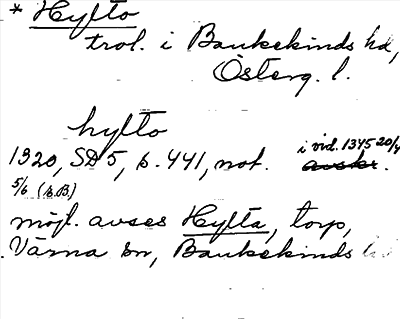 * Hyfto
trol. i Bankekinds hd,
Österg. l.
hyfto
i vid. 1345 20/4
1320, SD 5, s. 441, not. avskr.
5/6 (s.B)
möjl. avses Hyfta, torp,
Värna sn, Bankekinds